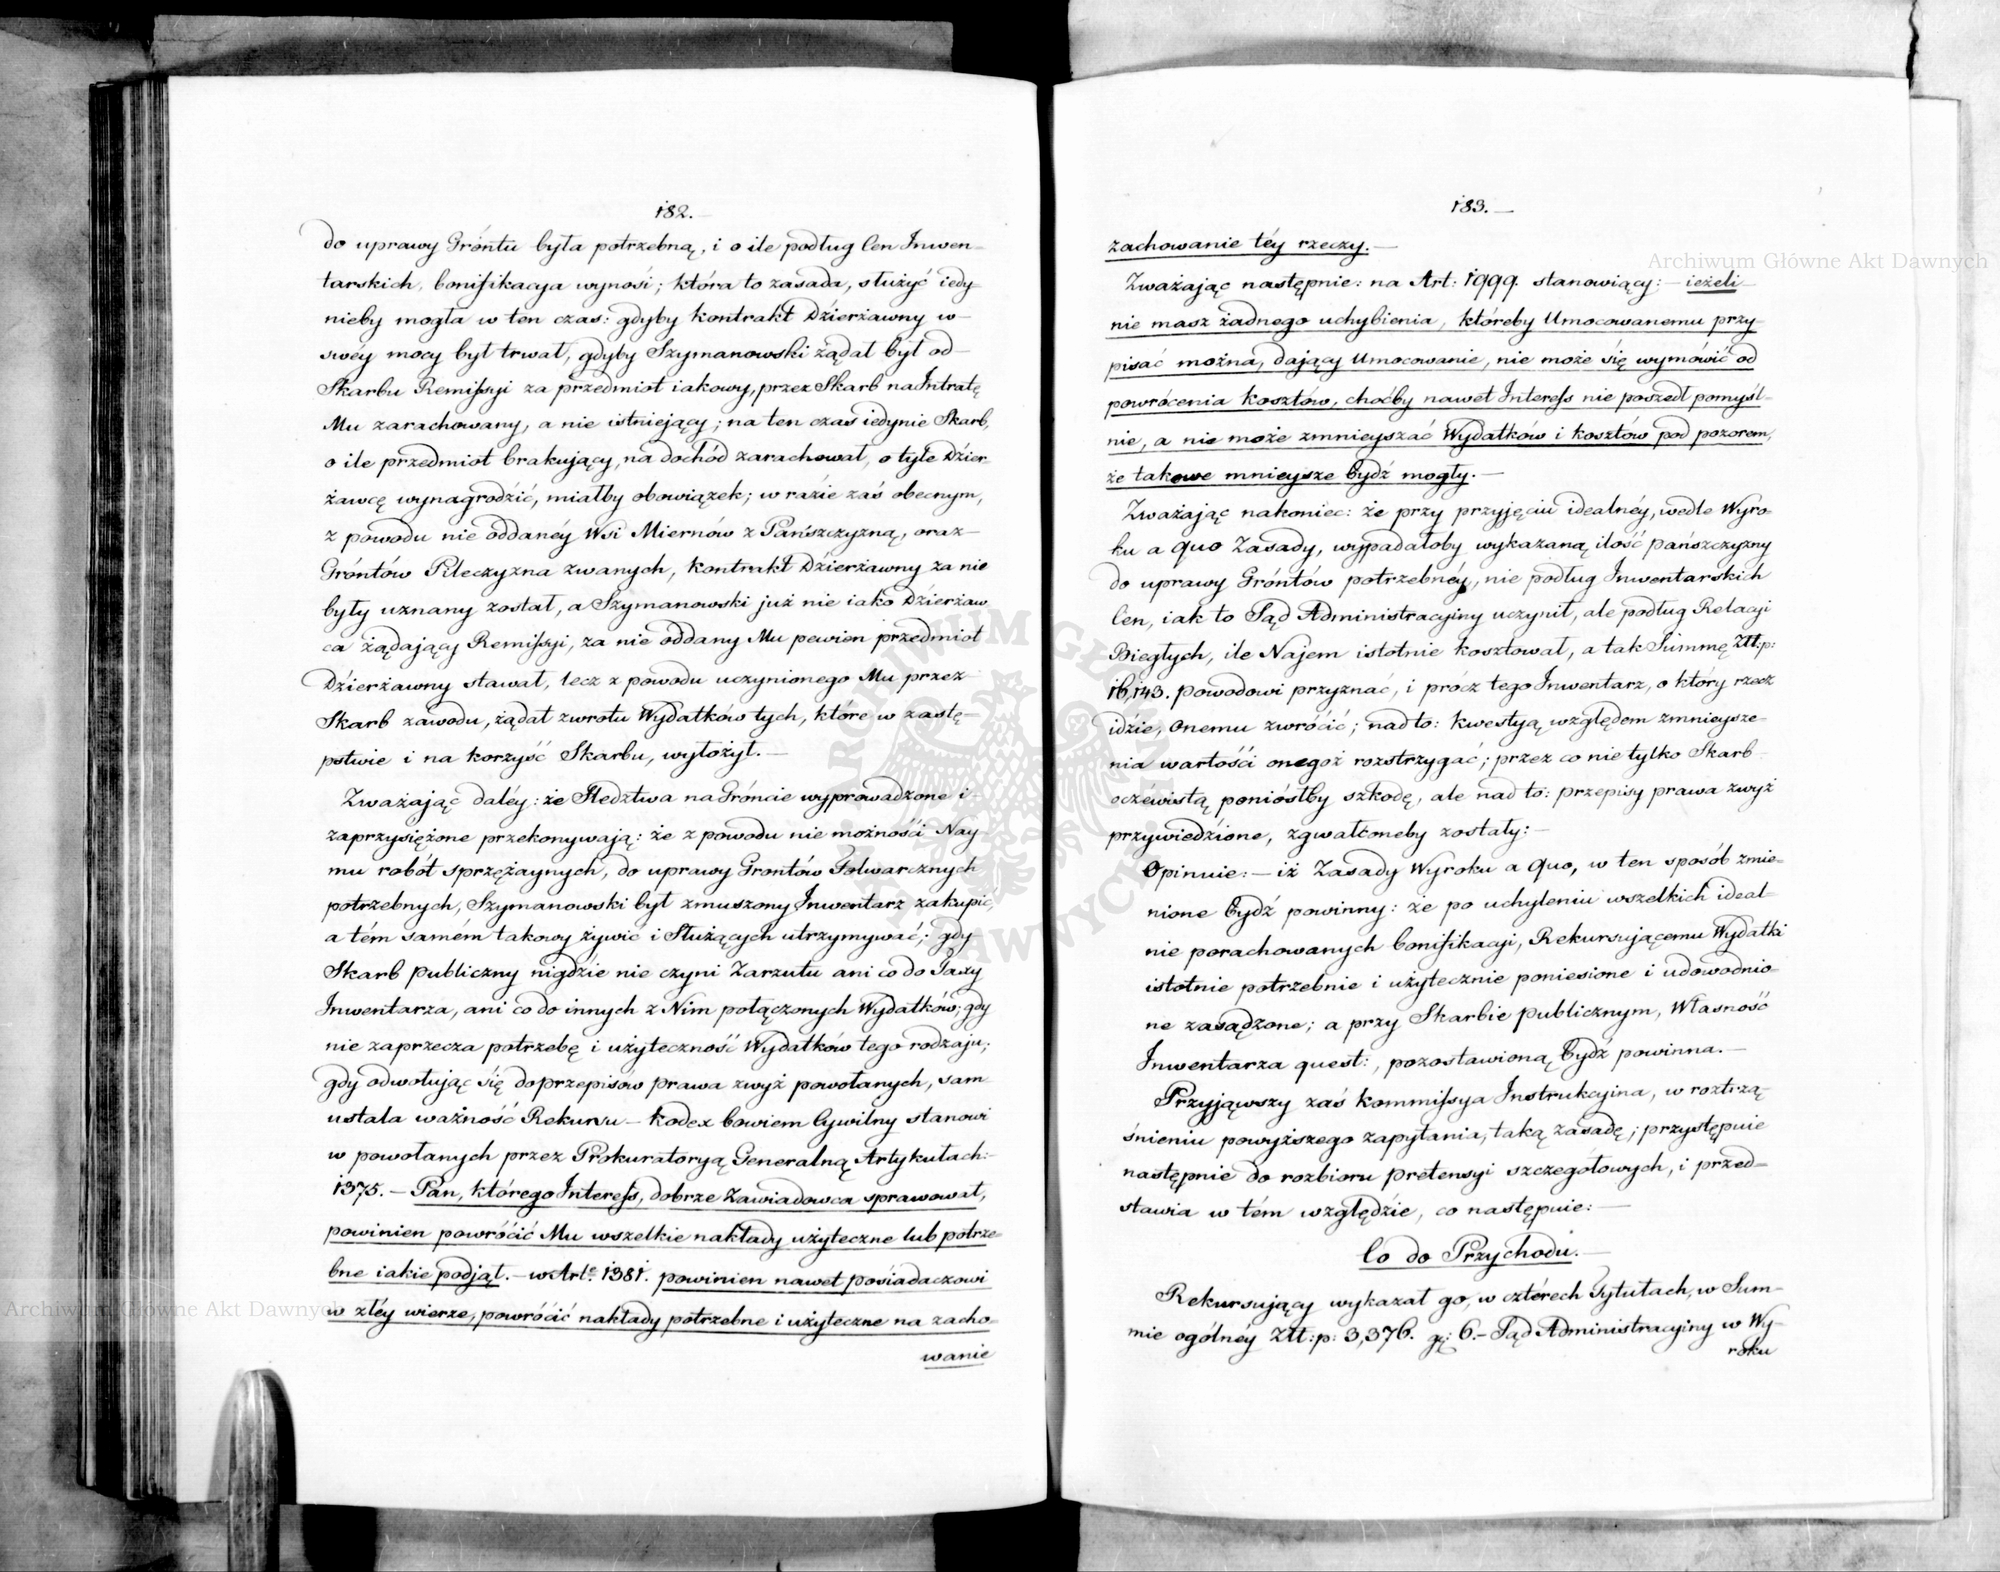 182.—
do uprawy Gróntu była potrzebną, i o ile podług Cen Inwen-
tarskich, bonifikacya wynosi; która to zasada, służyć iedy-
nieby mogła w ten czas: gdyby kontrakt Dzierżawny w-
swéy mocy był trwał, gdyby Szymanowski żądał był od-
Skarbu Remissyi za przedmiot iakowy, przez Skarb na Intratę
Mu zarachowany, a nie istniejący; na ten czas iedynie Skarb,
o ile przedmiot brakujący, na dochód zarachował, o tyle Dzier-
żawcę wynagrodzić, miałby obowiązek; w razie zaś obecnym,
z powodu nie oddanéy Wsi Miernów z Pańszczyzną, oraz-
Gróntów Pileczyzna zwanych, kontrakt Dzierżawny za nie
były uznany został, a Szymanowski już nie iako Dzierżaw
ca żądający Remissyi, za nie oddany Mu pewien przedmiot
Dzierżawny stawał, lecz z powodu uczynionego Mu przez-
Skarb zawodu, żądał zwrotu Wydatków tych, które w zastę-
pstwie i na korzyść Skarbu, wyłożył.—
Zważając daléy: że Śledztwa na Gróncie wyprowadzone i-
zaprzysiężone przekonywają: że z powodu nie możności Nay-
mu robót sprzężaynych, do uprawy Grontów Folwarcznych
potrzebnych, Szymanowski był zmuszony Inwentarz zakupić,
a tém samém takowy żywić i Służących utrzymywać; gdy
Skarb publiczny nigdzie nie czyni Zarzutu ani co do Taxy
Inwentarza, ani co do innych z Nim połączonych Wydatków; gdy
nie zaprzecza potrzebę i użyteczność Wydatków tego rodzaju;
gdy odwołując się do przepisów prawa zwyż powołanych, sam
ustala ważność Rekursu — Kodex bowiem Cywilny stanowi
w powołanych przez Prokuratoryą Generalną Artykułach:-
1375. — Pan, którego Interess, dobrze Zawiadowca sprawował,
powinien powróćić Mu wszelkie nakłady użyteczne lub potrze-
bne iakie podjął. — w Arte 1381. powinien nawet posiadaczowi
w złéy wierze, powróćić nakłady potrzebne i użyteczne na zacho-
wanie
183.—
zachowanie téy rzeczy.—
Zważając następnie: na Art: 1999. stanowiący:— ieżeli
nie masz żadnego uchybienia, któreby Umocowanemu przy-
pisać można, dający Umocowanie, nie może się wymówić od
powrócenia kosztów, choćby nawet Interess nie poszedł pomyśl-
nie, a nie może zmnieyszać Wydatków i kosztow pod pozorem,
że takowe mnieysze bydź mogły.—
Zważając nakoniec: że przy przyjęciu idealnéy, wedle Wyro-
ku a quo Zasady, wypadałoby wykazaną ilość pańszczyzny
do uprawy Gróntów potrzebnéy, nie podług Inwentarskich
Cen, iak to Sąd Administracyiny uczynił, ale podług Relacyi
Biegłych, ile Najem istotnie kosztował, a tak Summę Złt:p:
16,143. powodowi przyznać, i prócz tego Inwentarz, o który rzecz
idzie, onemu zwróćić; nad to: kwestyą względem zmnieysze-
nia wartości onegoż rozstrzygać; przez co nie tylko Skarb
oczewistą poniósłby szkodę, ale nad to: przepisy prawa zwyż
przywiedzione, zgwałconeby zostały:—
Opinuie:— iż Zasady Wyroku a quo, w ten sposób zmie-
nione bydź powinny: że po uchyleniu wszelkich ideal-
nie porachowanych bonifikacyi, Rekursującemu Wydatki
istotnie potrzebnie i użytecznie poniesione i udowodnio-
ne zasądzone; a przy Skarbie publicznym, Własność
Inwentarza quest:, pozostawioną bydź powinna.—
Przyjąwszy zaś kommissya Instrukcyina, w roztrzą-
śnieniu powyższego zapytania, taką zasadę; przystępuie
następnie do rozbioru pretensyi szczegółowych, i przed-
stawia w tém względzie, co następuie:—
Co do Przychodu.—
Rekursujący wykazał go, w czterech Tytułach, w Sum-
mie ogólnéy Złt:p: 3,376. gr: 6.— Sąd Administracyiny w Wy-
roku
Archiwum Główne Akt Dawnych
Archiwum Główne Akt Dawnych
ARCHIWUM GŁÓWNE AKT DAWNYCH